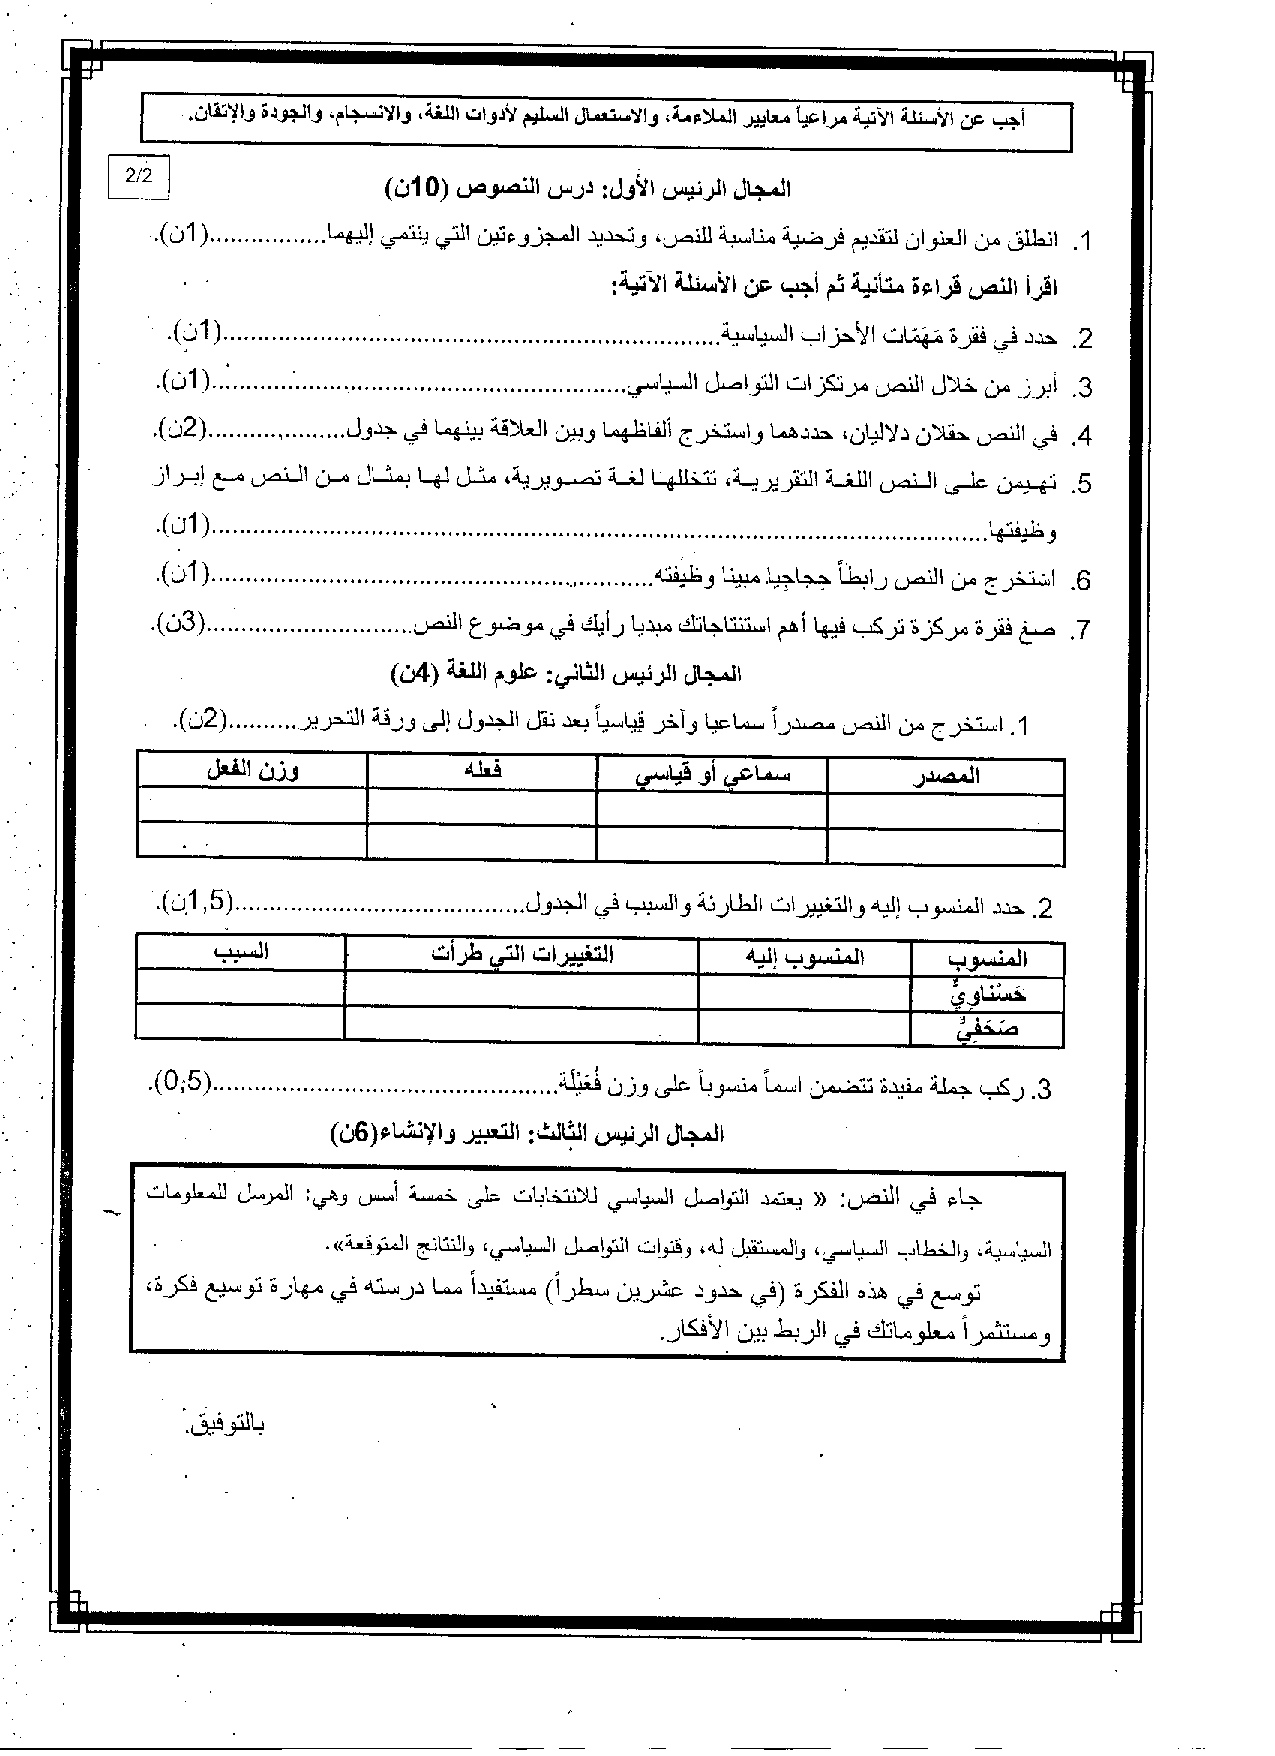 أجب عن الأسئلة الآتية مراعياً معايير الملاءمة، والاستعمال السليم لأدوات اللغة، والانسجام، والجودة والإتقان.
2/2
المجال الرئيس الأول: درس النصوص (10ن)
1. انطلق من العنوان لتقديم فرضية مناسبة للنص، وتحديد المجزوءتين التي ينتمي إليهما.................(1ن).
اقرأ النص قراءة متأنية ثم أجب عن الأسئلة الآتية:
2. حدد في فقرة مَهَمّات الأحزاب السياسية.......................................................................(1ن).
3. أبرز من خلال النص مرتكزات التواصل السياسي...........................................................(1ن).
4. في النص حقلان دلاليان، حددهما واستخرج ألفاظهما وبين العلاقة بينهما في جدول....................(2ن).
5. تهيمن على النص اللغة التقريرية، تتخللها لغة تصويرية، مثل لها بمثال من النص مع إبراز
وظيفتها...............................................................................................................(1ن).
6. استخرج من النص رابطاً حجاجيا مبينا وظيفته...............................................................(1ن).
7. صغ فقرة مركزة تركب فيها أهم استنتاجاتك مبديا رأيك في موضوع النص..............................(3ن).
المجال الرئيس الثاني: علوم اللغة (4ن)
1. استخرج من النص مصدراً سماعيا وآخر قياسياً بعد نقل الجدول إلى ورقة التحرير..........(2ن).
المصدر سماعي أو قياسي فعله وزن الفعل
2. حدد المنسوب إليه والتغييرات الطارئة والسبب في الجدول..........................................(1,5ن).
المنسوب المنسوب إليه التغييرات التي طرأت السبب
حَسْناوِيٌّ
صَحَفِيٌّ
3. ركب جملة مفيدة تتضمن اسماً منسوباً على وزن فُعَيْلَة..................................................(0,5).
المجال الرئيس الثالث: التعبير والإنشاء(6ن)
جاء في النص: « يعتمد التواصل السياسي للانتخابات على خمسة أسس وهي: المرسل للمعلومات
السياسية، والخطاب السياسي، والمستقبل له، وقنوات التواصل السياسي، والنتائج المتوقعة».
توسع في هذه الفكرة (في حدود عشرين سطراً) مستفيداً مما درسته في مهارة توسيع فكرة،
ومستثمراً معلوماتك في الربط بين الأفكار.
بالتوفيق.